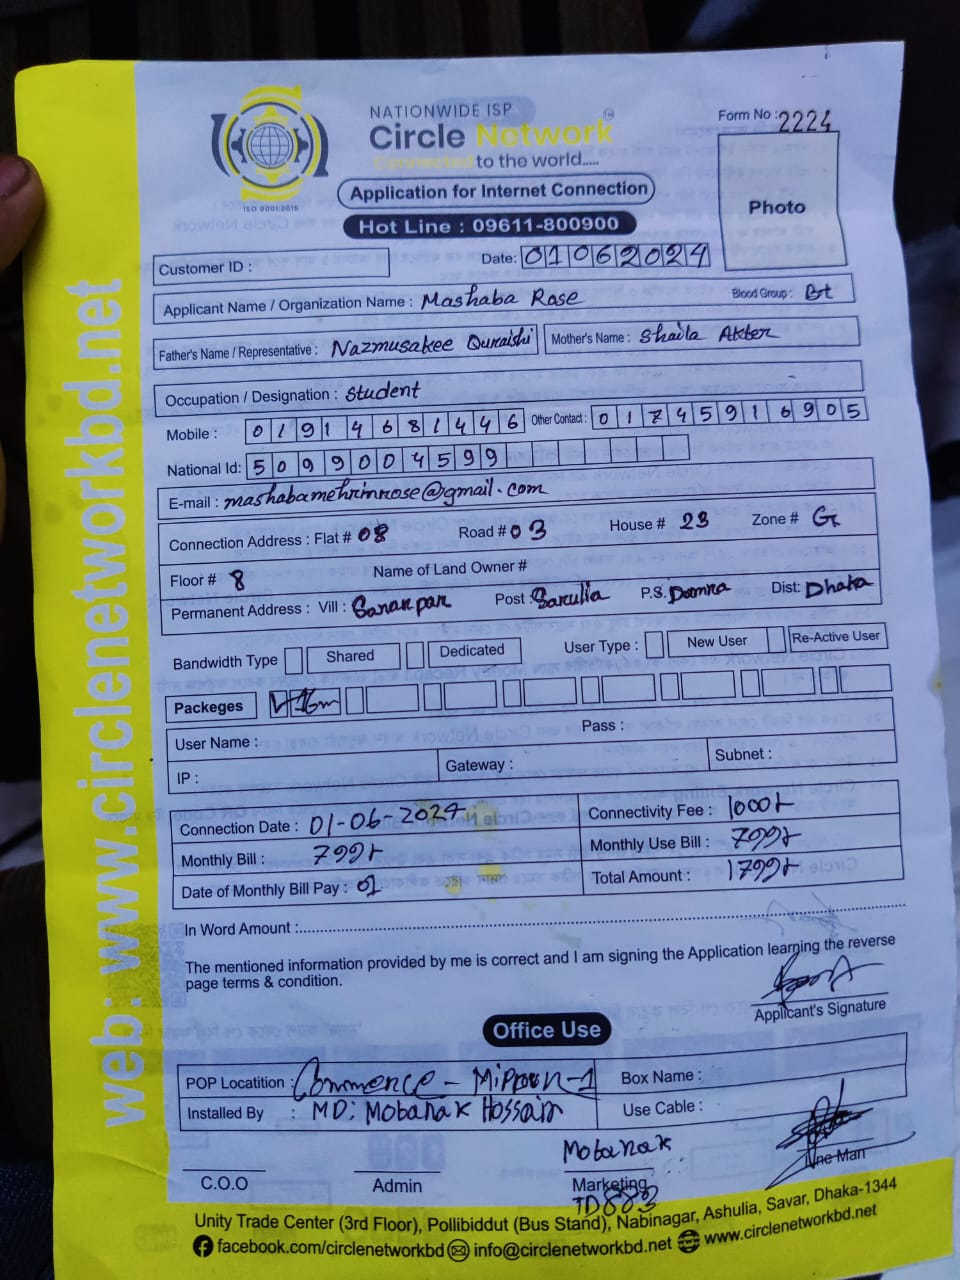 NATIONWIDE ISP
Circle Network
Connected to the world.....
ISO 9001:2015
Form No : 2224
Application for Internet Connection
Hot Line : 09611-800900
Photo
Customer ID :
Date: 01062024
Applicant Name / Organization Name : Mashaba Rose Blood Group : B+
Father's Name / Representative : Nazmusakee Quraishi Mother's Name : Shaila Akter
Occupation / Designation : Student
Mobile : 01914681446 Other Contact : 01745916905
National Id: 5099004599
E-mail : mashabamehrinrose@gmail.com
Connection Address : Flat # 08 Road # 03 House # 23 Zone # G
Floor # 8 Name of Land Owner #
Permanent Address : Vill : Post : Sarulia P.S. Demra Dist: Dhaka
Bandwidth Type Shared Dedicated User Type : New User Re-Active User
Packeges 16m
User Name : Pass :
IP : Gateway : Subnet :
Connection Date : 01-06-2024 Connectivity Fee : 1000৳
Monthly Bill : 799৳ Monthly Use Bill : 799৳
Date of Monthly Bill Pay : 01 Total Amount : 1799৳
In Word Amount :..........
The mentioned information provided by me is correct and I am signing the Application learning the reverse
page terms & condition.
Applicant's Signature
Office Use
POP Locatition : Commence - Mirpur-1 Box Name :
Installed By : MD: Mobarak Hossain Use Cable :
Mobarak
C.O.O Admin Marketing Line Man
ID883
Unity Trade Center (3rd Floor), Pollibiddut (Bus Stand), Nabinagar, Ashulia, Savar, Dhaka-1344
facebook.com/circlenetworkbd info@circlenetworkbd.net www.circlenetworkbd.net
web : www.circlenetworkbd.net